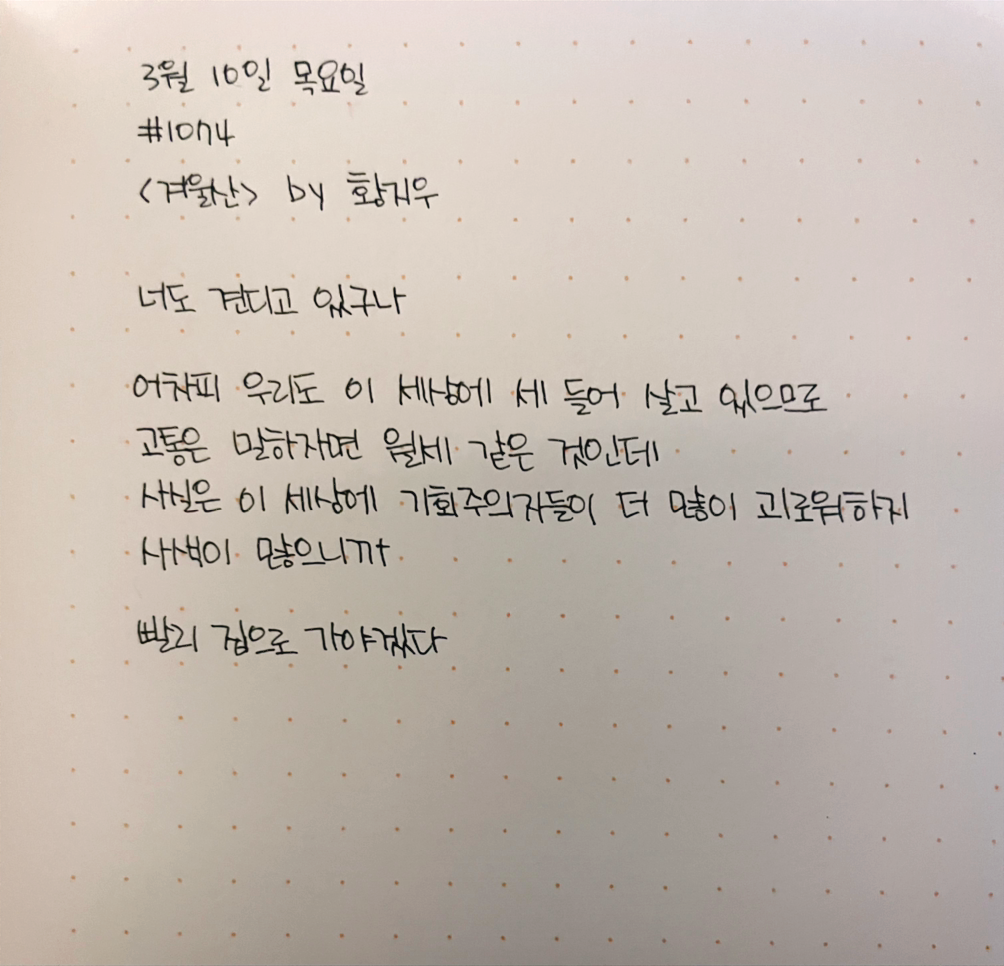 3월 10일 목요일
#1074
<겨울산> by 황지우
너도 견디고 있구나
어차피 우리도 이 세상에 세 들어 살고 있으므로
고통은 말하자면 월세 같은 것인데
사실은 이 세상에 기회주의자들이 더 많이 괴로워하지
사색이 많으니까
빨리 집으로 가야겠다